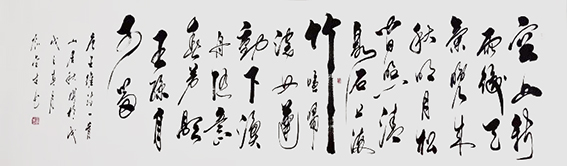 空山新
雨後天
氣晚來
秋明月松
間照清
泉石上流
竹喧歸
浣女蓮
動下漁
舟隨意
春芳歇
王孫自
可留
唐王維詩一首
山居秋暝